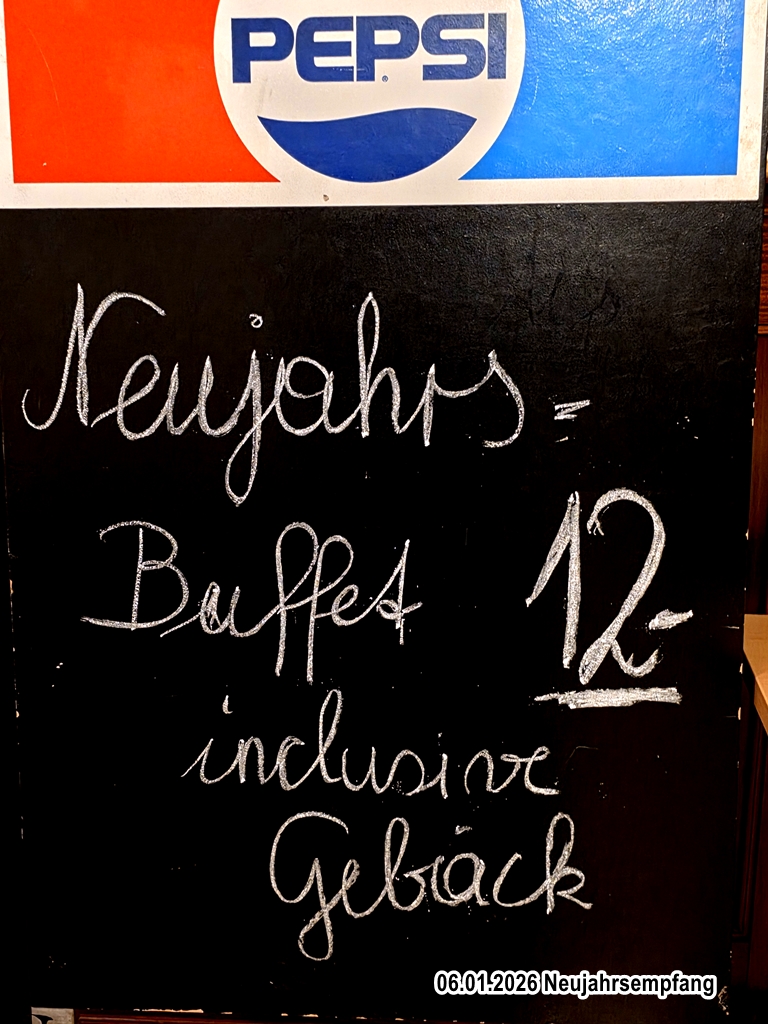 PEPSI®
Neujahrs=
Buffet 12-
inclusive
Gebäck
06.01.2026 Neujahrsempfang